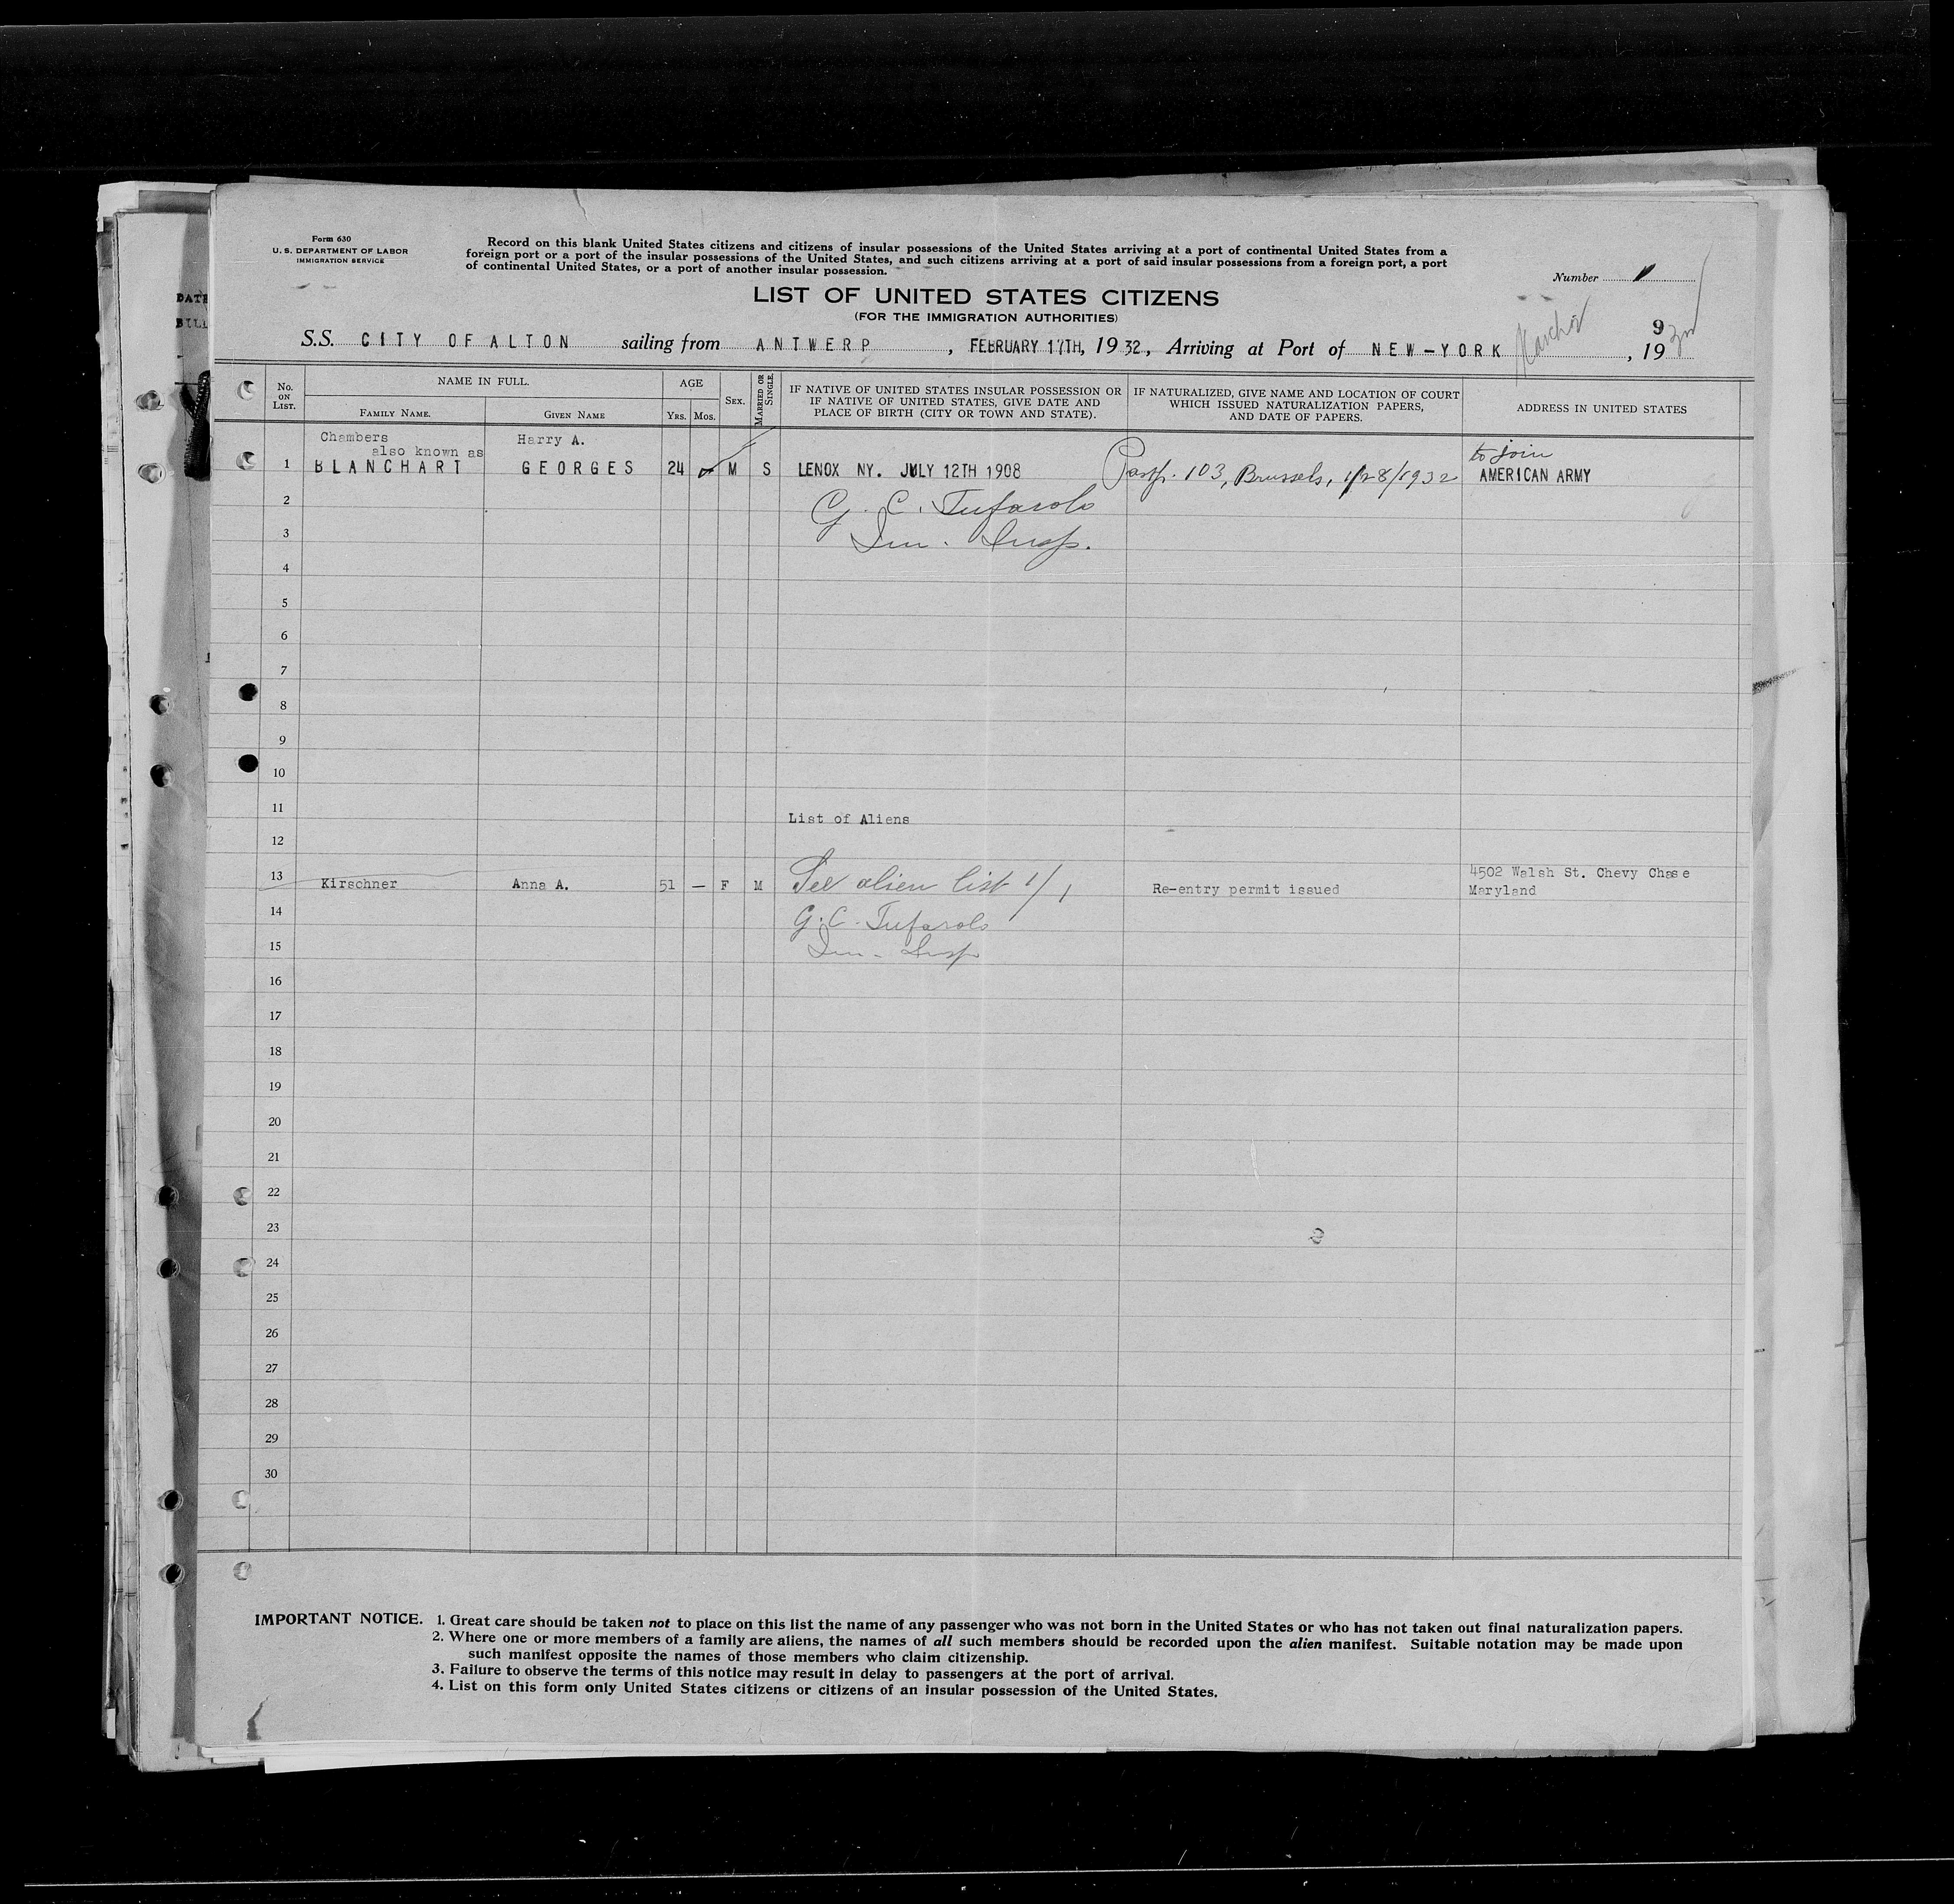 Form 630
U. S. DEPARTMENT OF LABOR
IMMIGRATION SERVICE
Record on this blank United States citizens and citizens of insular possessions of the United States arriving at a port of continental United States from a
foreign port or a port of the insular possessions of the United States, and such citizens arriving at a port of said insular possessions from a foreign port, a port
of continental United States, or a port of another insular possession.
Number
LIST OF UNITED STATES CITIZENS
(FOR THE IMMIGRATION AUTHORITIES)
S.S. CITY OF ALTON sailing from ANTWERP, FEBRUARY 17TH, 1932, Arriving at Port of NEW-YORK, 19
DATE
No. ON LIST.
NAME IN FULL.
FAMILY NAME.
GIVEN NAME
AGE
YRS. MOS.
SEX.
MARRIED OR SINGLE.
IF NATIVE OF UNITED STATES INSULAR POSSESSION OR
IF NATIVE OF UNITED STATES, GIVE DATE AND
PLACE OF BIRTH (CITY OR TOWN AND STATE).
IF NATURALIZED, GIVE NAME AND LOCATION OF COURT
WHICH ISSUED NATURALIZATION PAPERS,
AND DATE OF PAPERS.
ADDRESS IN UNITED STATES
Chambers Harry A.
also known as
to join
1 BLANCHART GEORGES 24 M S LENOX NY. JULY 12TH 1908 Passp. 103, Brussels, 1/28/1932 AMERICAN ARMY
2 G. C. Tufarolo
3 Im. Insp.
4
5
6
7
8
9
10
11
List of Aliens
12
13 Kirschner Anna A. 51 — F M See alien list 1/1 Re-entry permit issued 4502 Walsh St. Chevy Chase
Maryland
14 G. C. Tufarolo
15 Im. Insp
16
17
18
19
20
21
22
23
24
25
26
27
28
29
30
IMPORTANT NOTICE. 1. Great care should be taken not to place on this list the name of any passenger who was not born in the United States or who has not taken out final naturalization papers.
2. Where one or more members of a family are aliens, the names of all such members should be recorded upon the alien manifest. Suitable notation may be made upon
such manifest opposite the names of those members who claim citizenship.
3. Failure to observe the terms of this notice may result in delay to passengers at the port of arrival.
4. List on this form only United States citizens or citizens of an insular possession of the United States.